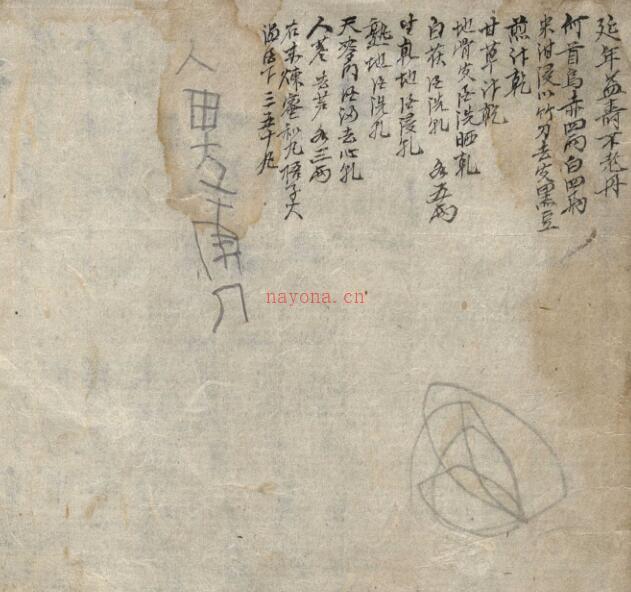 延年益壽不老丹
何首烏赤四兩白四兩
米泔浸以竹刀去皮黑豆
煎汁乾
甘草汁乾
地骨皮 酒洗晒乾
白茯 酒洗乳 各五兩
生乾地 酒浸乳
熟地 酒洗乳
天麥門 酒 去心乳
人參 去芦 各三兩
右末煉蜜和丸梧子大
溫酒下三五十丸
nayona.cn